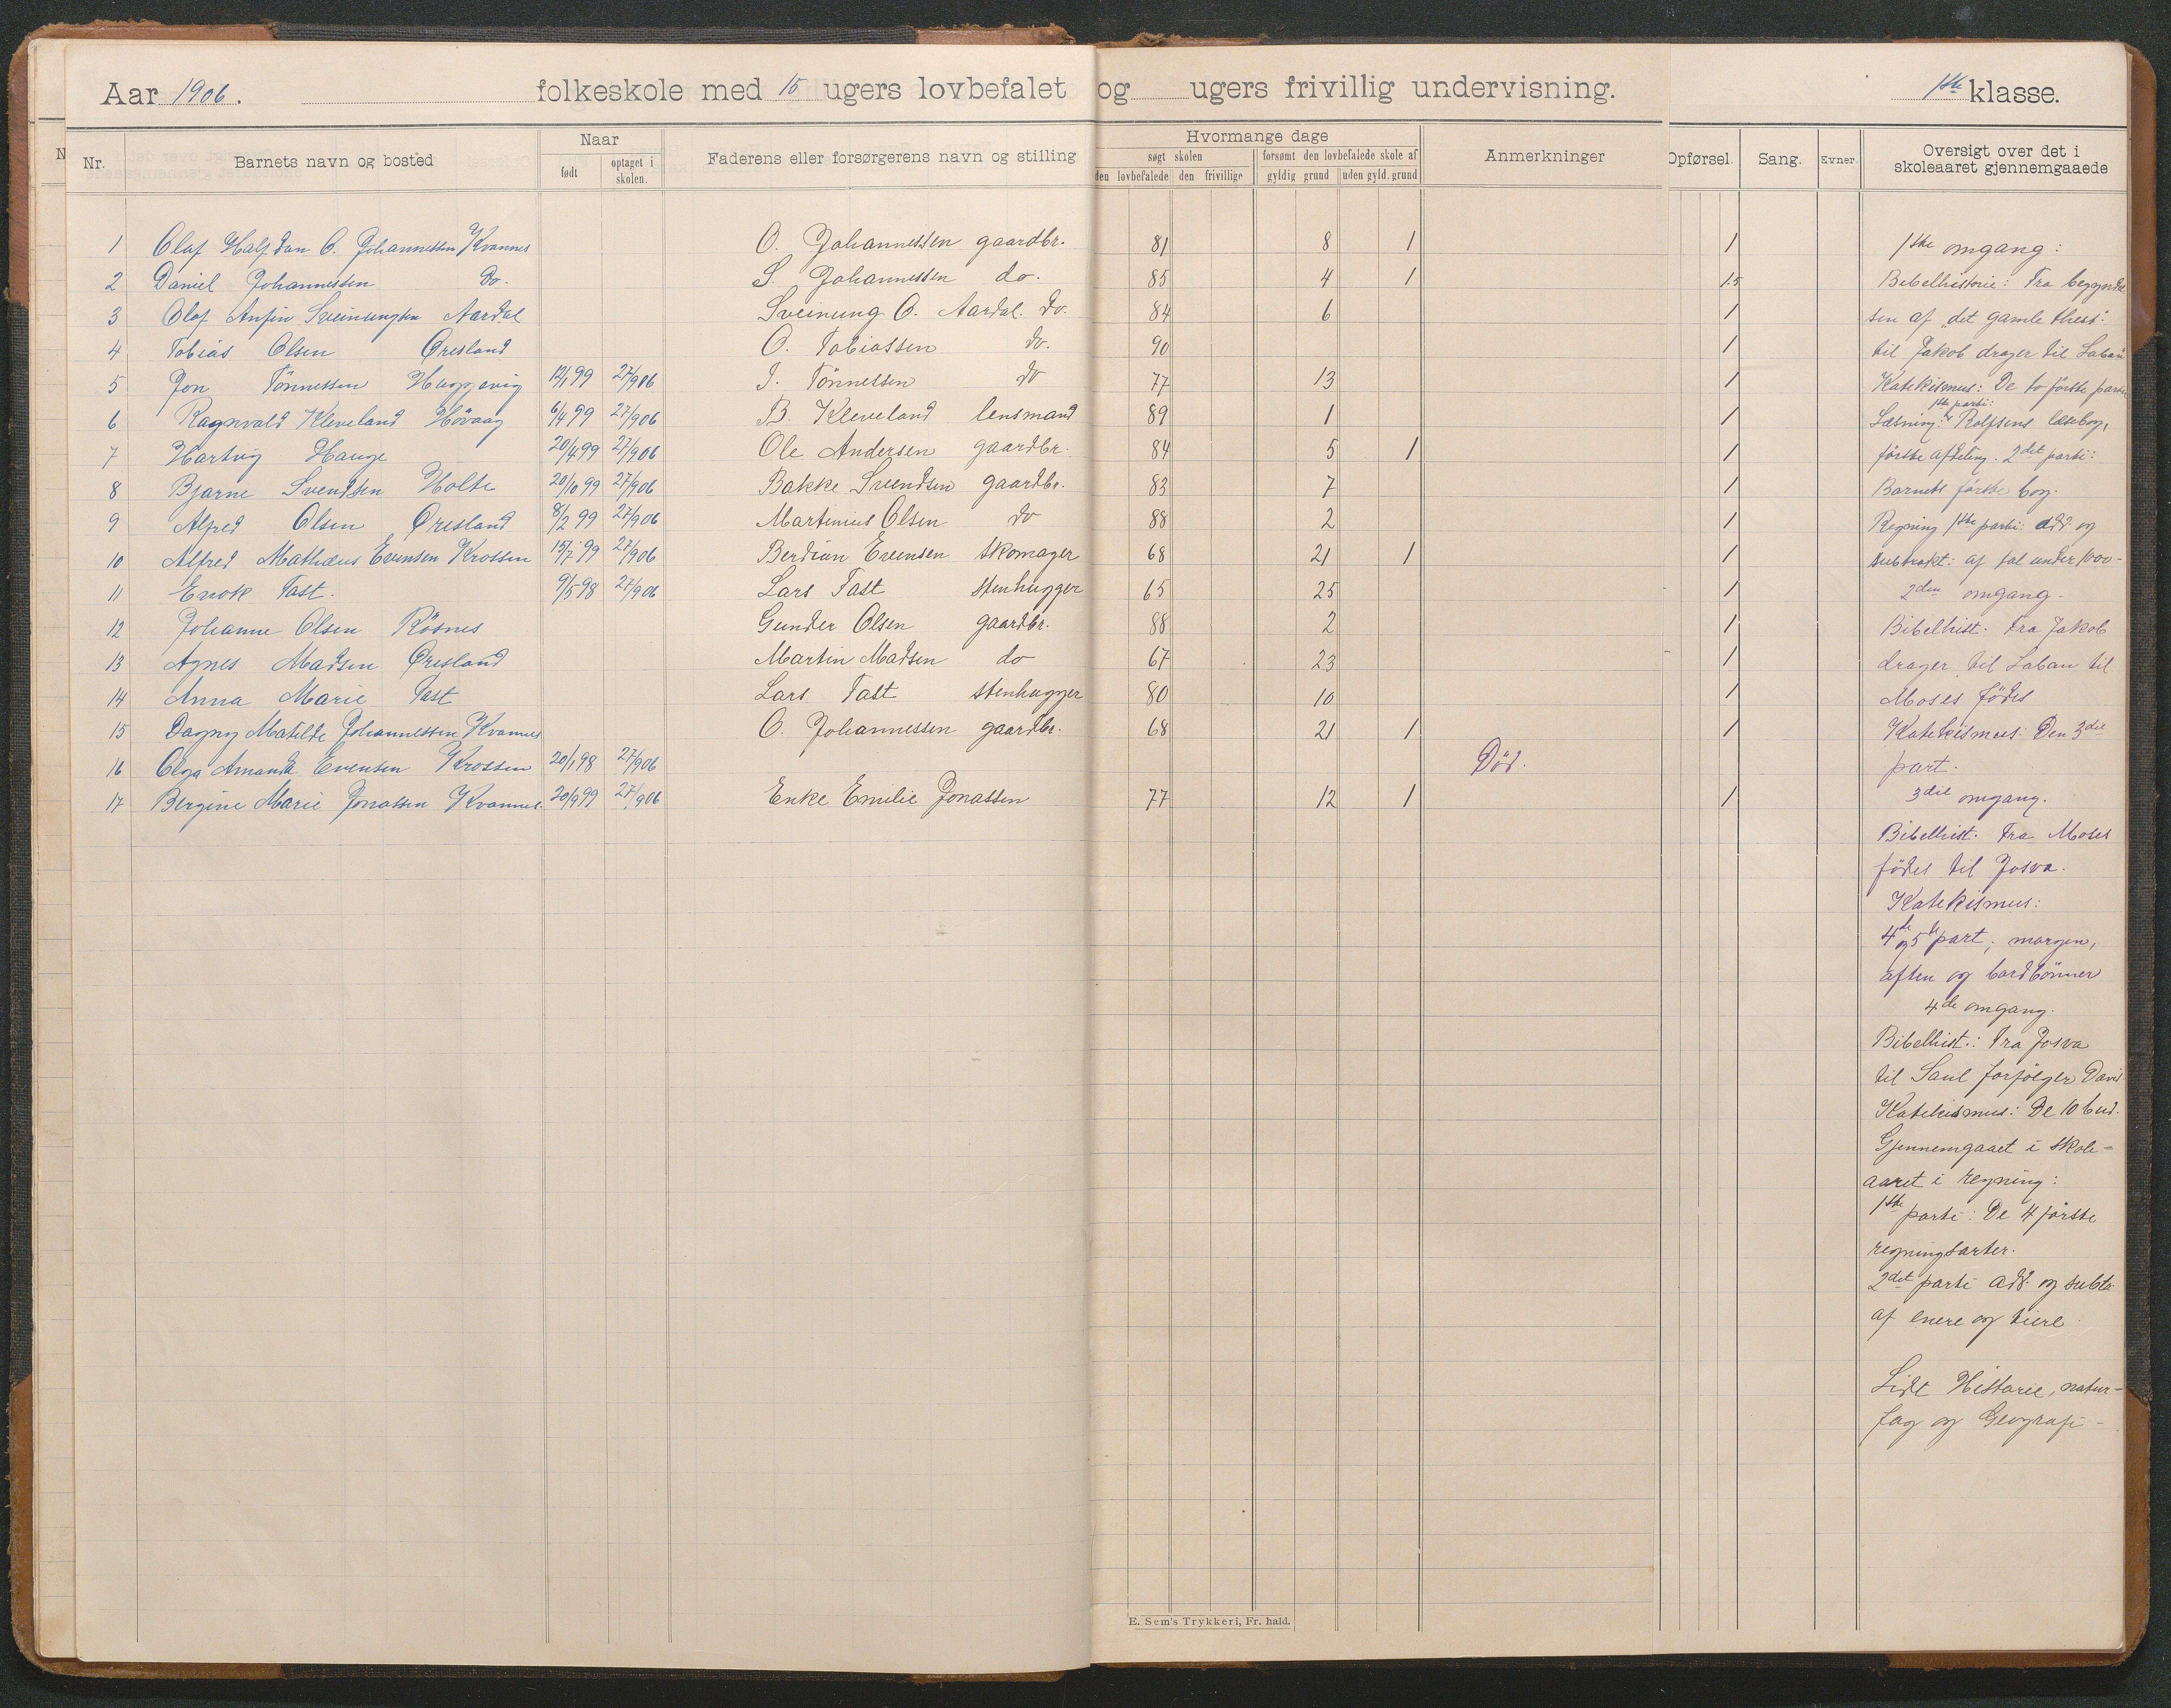 Aar 1906. folkeskole med 15 ugers lovbefalet og ugers frivillig undervisning. 1ste klasse.
Nr. Barnets navn og bosted Naar født optaget i skolen. Faderens eller forsørgerens navn og stilling Hvormange dage søgt skolen den lovbefalede den frivillige forsømt den lovbefalede skole af gyldig grund uden gyld. grund Anmerkninger Opførsel. Sang. Evner Oversigt over det i skoleaaret gjennemgaaede
1 Olaf Halfdan O. Johannessen Kvannes O. Johannessen gaardbr. 81 8 1 1
2 Daniel Johannessen do. S. Johannessen do. 85 4 1 1.5
3 Olaf Anfin Sveinungsen Aardal Sveinung O. Aardal. do. 84 6 1
4 Tobias Olsen Øresland O. Tobiassen do. 90 1
5 Jon Tönnessen 12/1 99 27/9 06 J. Tönnessen do 77 13 1
6 Ragnvald Kleveland Hövaag 6/4 99 27/9 06 B. Kleveland lensmand 89 1 1
7 Hartvig Hauge 20/4 99 27/9 06 Ole Andersen gaardbr. 84 5 1 1
8 Bjarne Svendsen Holte 20/10 99 27/9 06 Bakke Svendsen gaardbr. 83 7 1
9 Alfred Olsen Øresland 8/2 99 27/9 06 Martinius Olsen do 88 2 1
10 Alfred Mathæus Evensen Krossen 15/7 99 27/9 06 Berdian Evensen skomager 68 21 1 1
11 Enok Tast. 9/5 98 27/9 06 Lars Tast stenhugger 65 25 1
12 Johanne Olsen Rösnes Gunder Olsen gaardbr. 88 2 1
13 Agnes Madsen Øresland Martin Madsen do 67 23 1
14 Anna Marie Tast Lars Tast stenhugger 80 10 1
15 Dagny Matilde Johannessen Kvannes O. Johannessen gaardbr. 68 21 1 1
16 Olga Amanda Evensen Krossen 20/1 98 27/9 06 Död.
17 Bergine Marie Jonassen Kvannes 20/9 99 27/9 06 Enke Emilie Jonassen 77 12 1 1
1ste omgang:
Bibelhistorie: Fra begyndel
sen af "det gamle thest".
til Jakob drager til Laban
Katekismus: De to förste parter
1ste parti:
Læsning: Rolfsens læsebog,
förste afdeling. 2det parti:
Barnets förste bog.
Regning 1ste parti: add. og
subtrakt: af tal under 1000-
2den omgang.
Bibelhist. Fra Jakob
drager til Laban til
Moses födes
Katekismus: Den 3die
part.
3die omgang.
Bibelhist. Fra Moses
födes til Josva.
Katekismus:
4de og 5te part, morgen,
aften og bordbönner
4de omgang.
Bibelhist.: Fra Josva
til Saul forfölger David
Katekismus: De 10 bud.
Gjennemgaaet i skole-
aaret i regning:
1ste parti: De 4 förste
regningsarter.
2det parti add. og subtr
af enere og tiere.
Lidt Historie, natur-
fag og Geografi -
E. Sem's Trykkeri, Fr. hald.